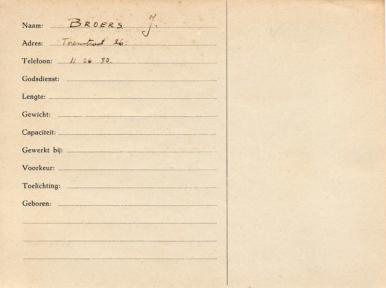 Naam: BROERS J.
Adres: Torenstraat 26.
Telefoon: 11 26 90.
Godsdienst:
Lengte:
Gewicht:
Capaciteit:
Gewerkt bij:
Voorkeur:
Toelichting:
Geboren: